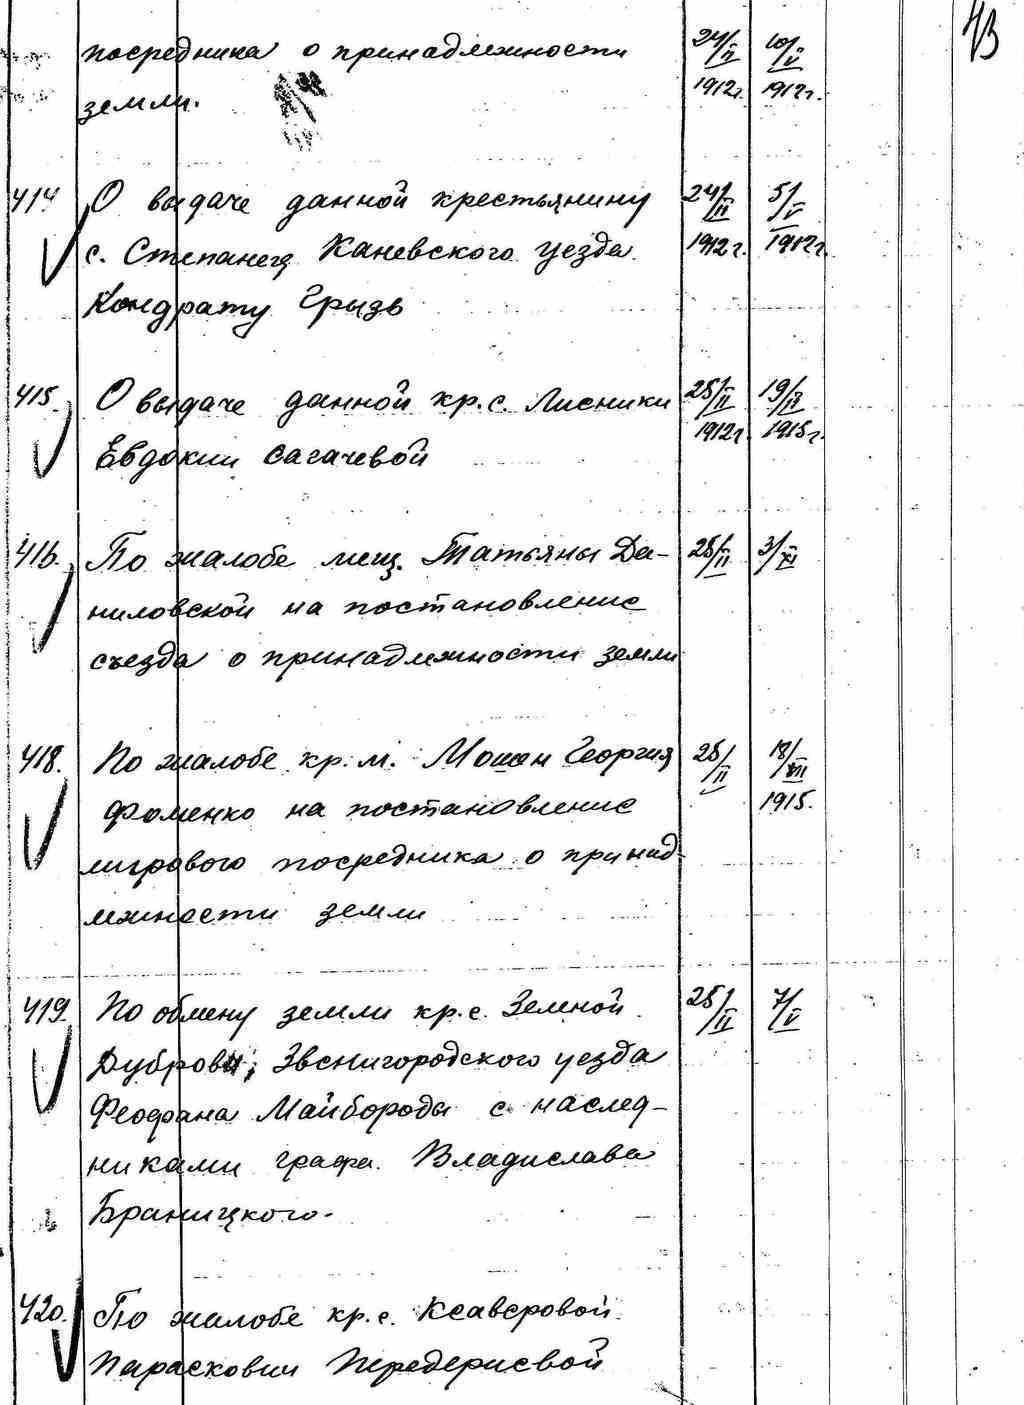 43
посредника о принадлежности 24/II 10/V
земли. 1912г. 1912г.
414 О выдаче данной крестьянину 24/II 5/V
с. Степанец Каневского уезда 1912г. 1912г.
Кондрату Грызь
415. О выдаче данной кр. с. Лисники 25/II 19/IV
Евдокии Сагачевой 1912г. 1915г.
416. По жалобе мещ. Татьяны Да- 25/II 3/XI
ниловской на постановление
съезда о принадлежности земли
418. По жалобе кр. м. Мошен Георгия 25/II 18/VII
Фоменко на постановление 1915.
мирового посредника о принад-
лежности земли
419. По обмену земли кр. с. Зеленой 25/II 7/V
Дубровы, Звенигородского уезда
Феофана Майбороды с наслед-
никами графа Владислава
Браницкого.
420. По жалобе кр. с. Ксаверовой
Парасковии Передериевой